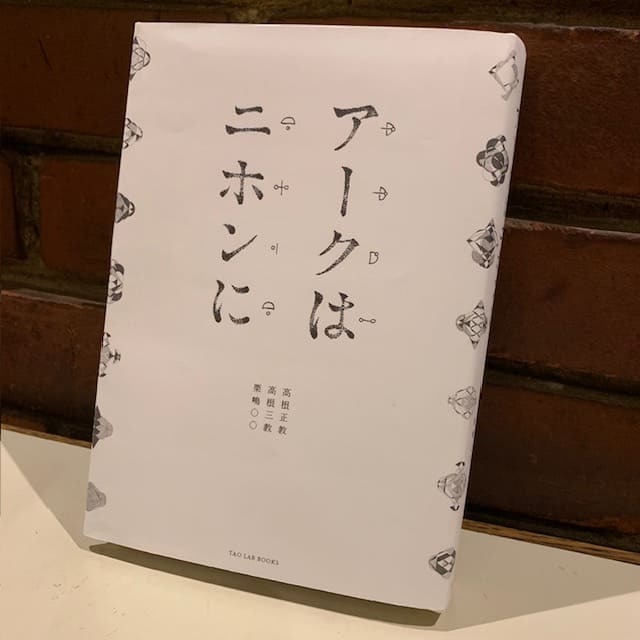 アークは
ニホンに
高根正教
高根三教
栗嶋〇〇
TAO LAB BOOKS